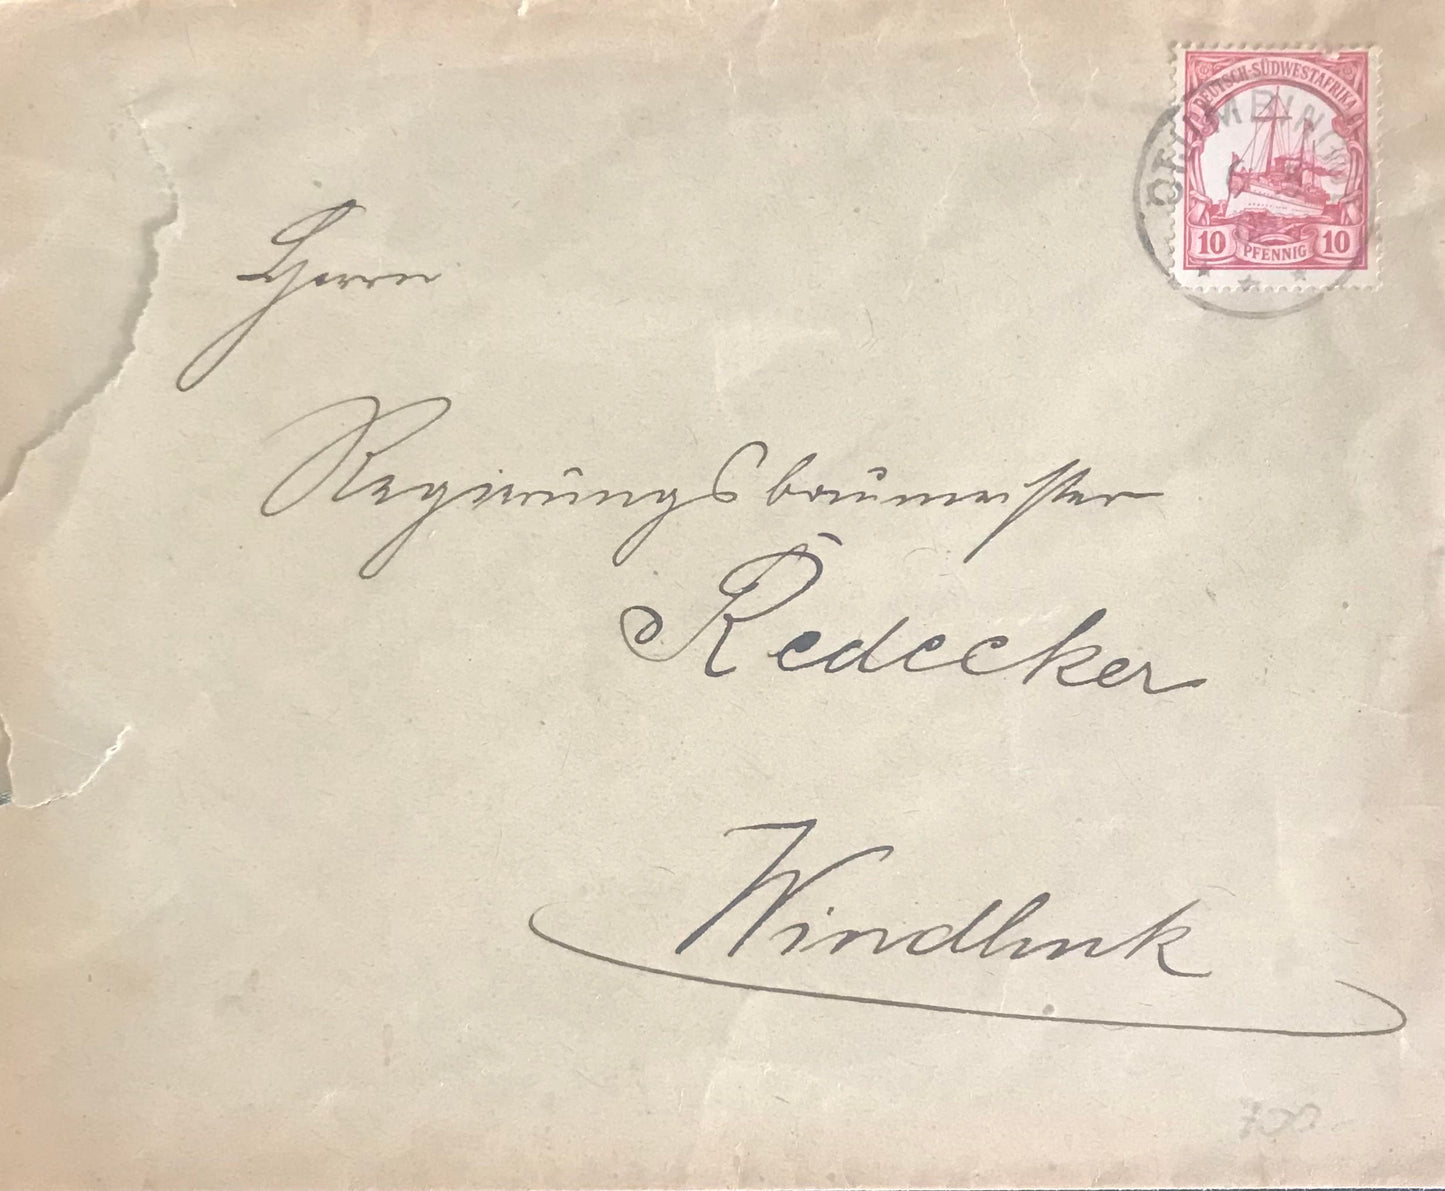 DEUTSCH-SÜDWESTAFRIKA
10 PFENNIG 10
Herrn
Regierungsbaumeister
Redecker
Windhuk
700